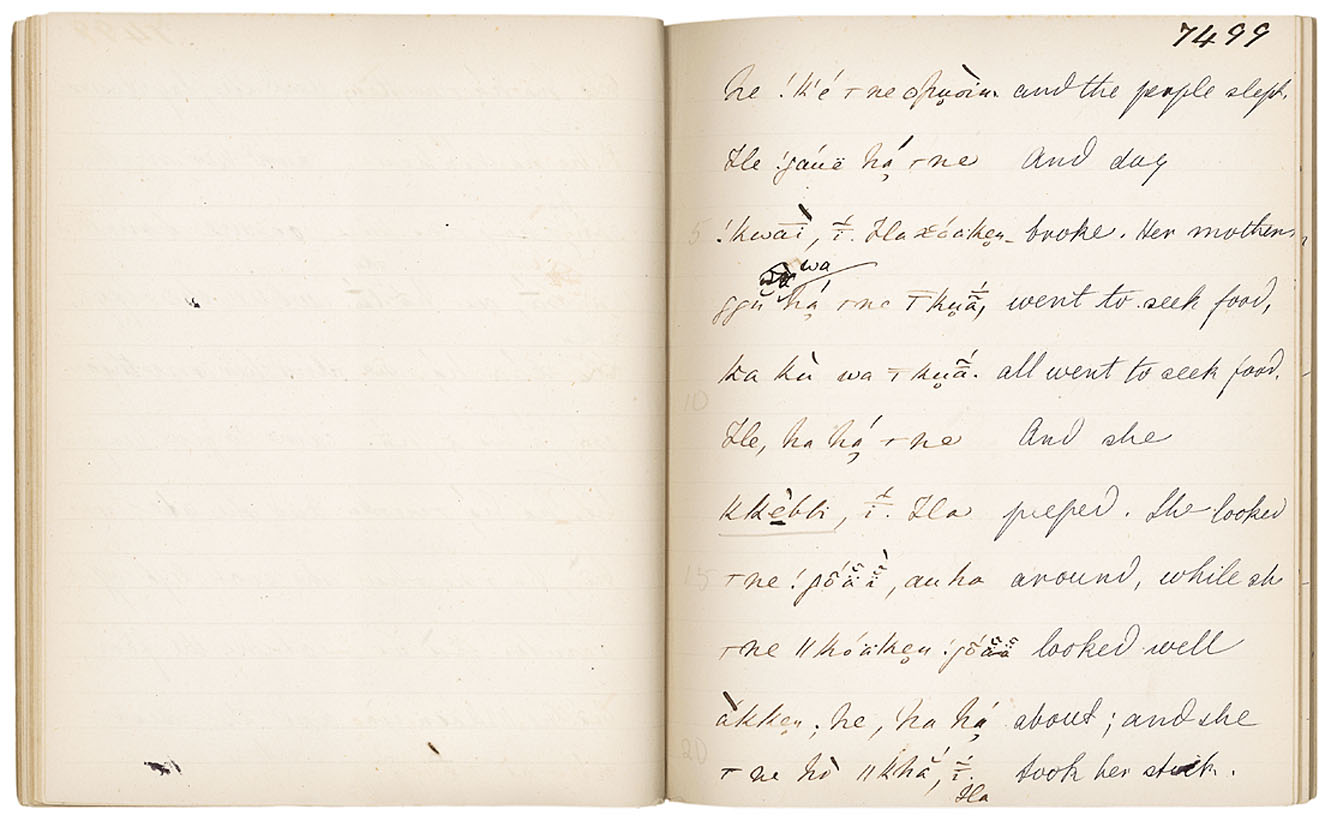 7499
he !k'é ⊤ne opuoin. and the people slept.
He !gáuë há ⊤ne And day
5 !kwāì, ī́. Ha xóäken broke. Her mothers
wa
ggù há ⊤ne ⊤kuã́, went to seek food,
ka kù wa ⊤kuã́. all went to seek food.
10
He, ha há ⊤ne And she
kkèbbi, ī́. Ha peeped. She looked
15 ⊤ne !gõä ï, au ha around, while sh
⊤ne ǁkóäken !gõää looked well
àkken; he, ha há about; and she
20 ⊤ne hò ǁkhà, ī́. took her stick.
Ha